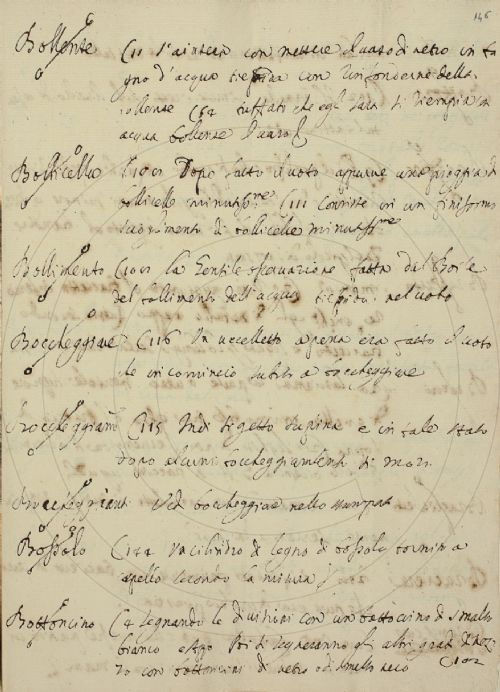 146
Bollente C 11 s'aiuterà con mettere il vaso di vetro in ba
gno d'acqua tiepida con infonderne della
bollente C 54 tuffati che egli sarà si riempia
acqua bollente il vaso
Bollicella C 109 Dopo fatto il vuoto apparve una pioggia di
bollicelle minutiss.me C 111 consiste in un finissimo
di bollicelle minutiss.me
Bollimento C 109 la gentile osservazione fatta dal Boile
del bollimento dell'acqua tiepida nel vuoto
Boccheggiare C 116 Un uccelletto appena era fatto il vuoto
che incominciò subito a boccheggiare
Boccheggiam C 115 Indi si gettò supina e in tale stato
dopo alcuni boccheggiamenti si morì
Boccheggianti Ved boccheggiare nello
Bossolo C 144 Un cilindro di legno di bossolo tornito a
pello secondo la misura
Bottoncino C 4 segnando le divisioni con un bottoncino di smalto
bianco e Poi si segneranno gli altri gradi di mez
zo con bottoncini di vetro o di smalto nero
C 102